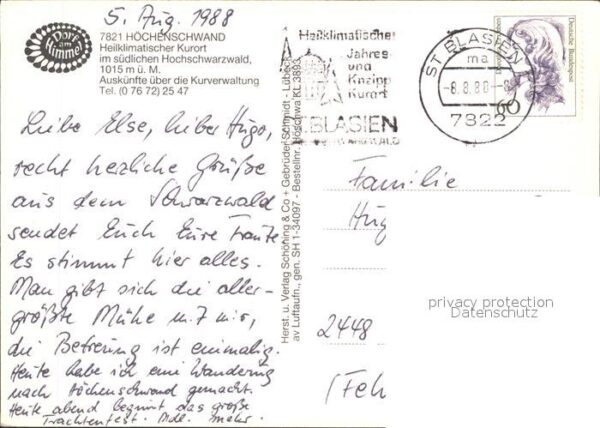 5. Aug. 1988
Dorf am Himmel
7821 HÖCHENSCHWAND
Heilklimatischer Kurort
im südlichen Hochschwarzwald,
1015 m ü. M.
Auskünfte über die Kurverwaltung
Tel. (0 76 72) 25 47
Liebe Else, lieber Hugo,
recht herzliche Grüße
aus dem Schwarzwald
sendet Euch Eure Traute.
Es stimmt hier alles.
Man gibt sich die aller-
größte Mühe m. mir,
die Betreuung ist einmalig.
Heute habe ich eine Wanderung
nach Höchenschwand gemacht.
Heute abend beginnt das große
Trachtenfest. mehr.
Herst. u. Verlag Schöning & Co + Gebrüder Schmidt - Lübeck
av Luftaufn., gen. SH 1-34097 - Bestellnr. Höschwa KL 3893
Heilklimatischer
Jahres-
und
Kneipp
Kurort
ST. BLASIEN
ST BLASIEN
ma
-8.8.88-
7822
Deutsche Bundespost
60
Familie
Hug
2448
(Feh
privacy protection
Datenschutz